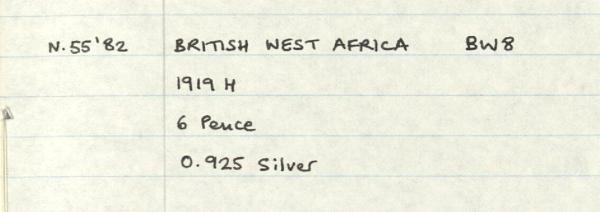 N.55'82 BRITISH WEST AFRICA BW8
1919 H
6 Pence
0.925 Silver